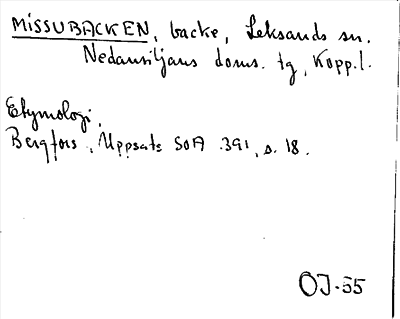 MISSUBACKEN, backe, Leksands sn.
Nedansiljans doms. tg, Kopp.l.
Etymologi.
Bergfors, Uppsats SOA 391, s. 18.
OJ-55